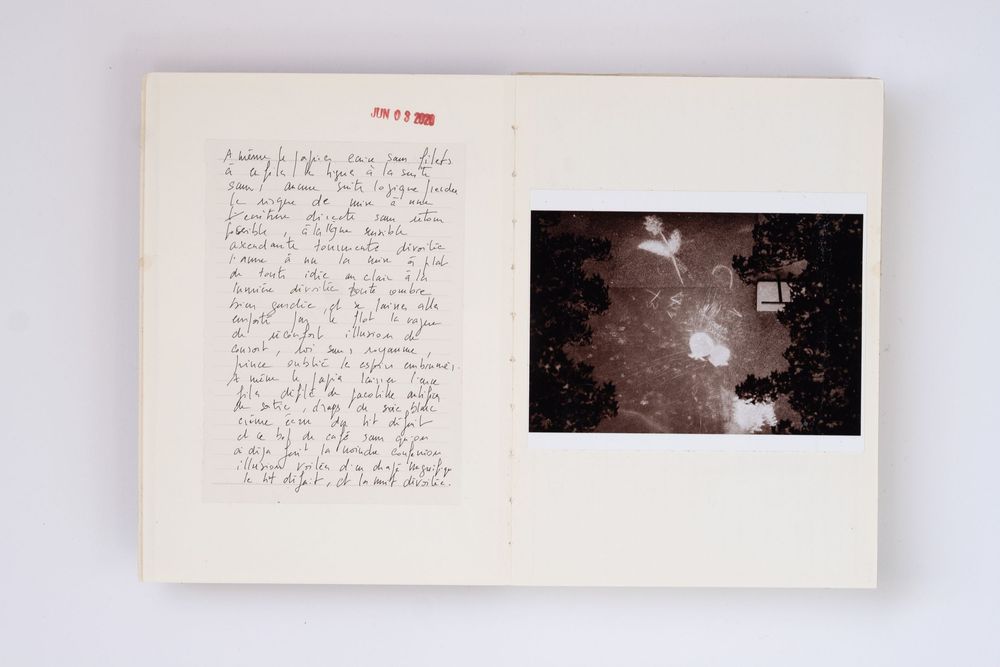 JUN 0 3 2020
A même le papier écrire sans filets
à la ligne à la suite
sans aucune suite logique perdre
le risque de mise à nue
l'écriture directe sans retour
possible, à la ligne sensible
ascendante tourmente dévoilée
l'âme à nu la mise à plat
de toute idée au clair à la
lumière dévoilée toute ombre
bien gardée, et se laisser aller
emporté par le flot la vague
de réconfort illusion de
confort, roi sans royaume,
prince oublié les espoirs embrumés.
A même le papier laisser l'encre
filer de pacotille
de satin, draps de soie blanc
crème écru du lit défait
et ce bol de café sans
a déjà fait la moindre confusion
illusion voilée d'un drapé magnifique
le lit défait, et la nuit dévoilée.